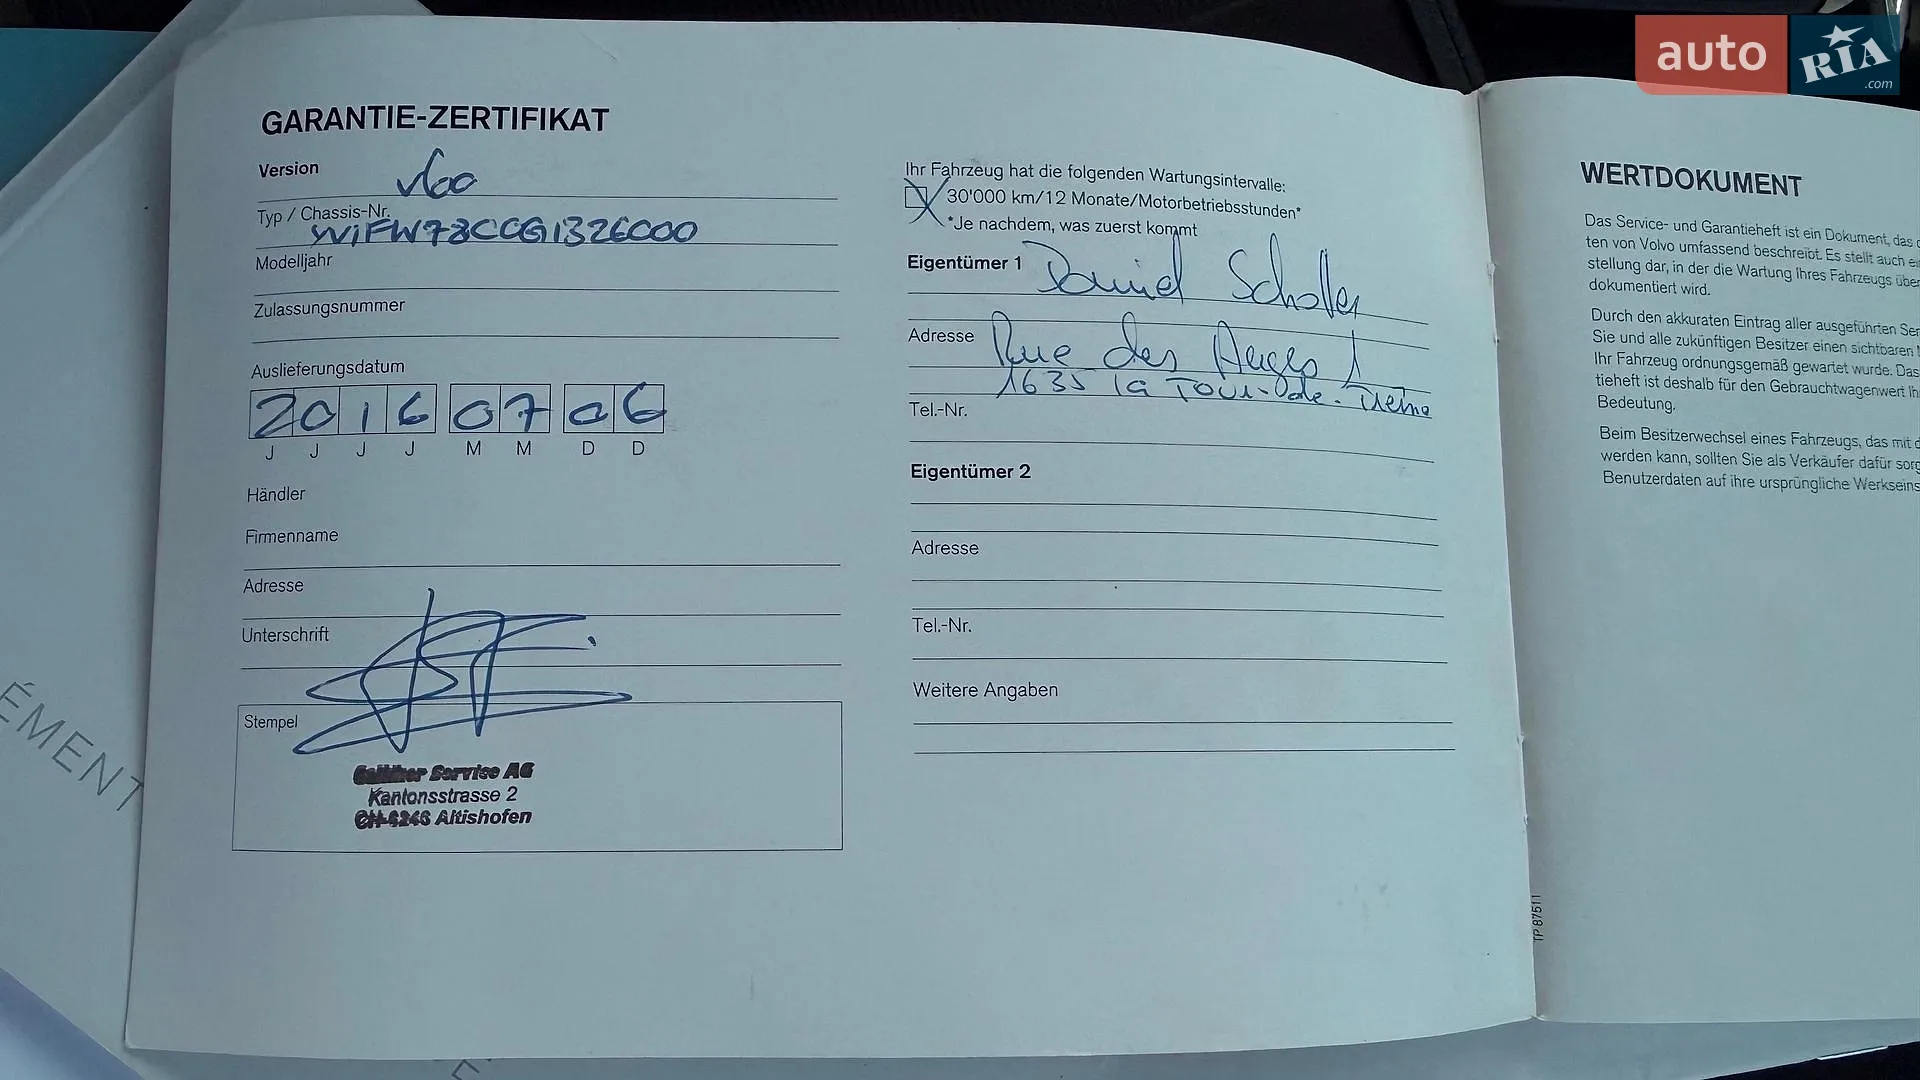 auto RIA.com
GARANTIE-ZERTIFIKAT
Version V60
Typ / Chassis-Nr. YV1FW78CCG1326000
Modelljahr
Zulassungsnummer
Auslieferungsdatum
2016 07 06
J J J J M M D D
Händler
Firmenname
Adresse
Unterschrift
Stempel
Service AG
Kantonsstrasse 2
CH-6246 Altishofen
Ihr Fahrzeug hat die folgenden Wartungsintervalle:
30'000 km/12 Monate/Motorbetriebsstunden*
*Je nachdem, was zuerst kommt
Eigentümer 1 Daniel
Adresse Rue des 1
1635 la Tour-de-Trême
Tel.-Nr.
Eigentümer 2
Adresse
Tel.-Nr.
Weitere Angaben
TP 87511
WERTDOKUMENT
Das Service- und Garantieheft ist ein Dokument, das
ten von Volvo umfassend beschreibt. Es stellt auch
stellung dar, in der die Wartung Ihres Fahrzeugs
dokumentiert wird.
Durch den akkuraten Eintrag aller ausgeführten
Sie und alle zukünftigen Besitzer einen sichtbaren
Ihr Fahrzeug ordnungsgemäß gewartet wurde. Das
tieheft ist deshalb für den Gebrauchtwagenwert
Bedeutung.
Beim Besitzerwechsel eines Fahrzeugs, das mit
werden kann, sollten Sie als Verkäufer dafür
Benutzerdaten auf ihre ursprüngliche
ÉMENT